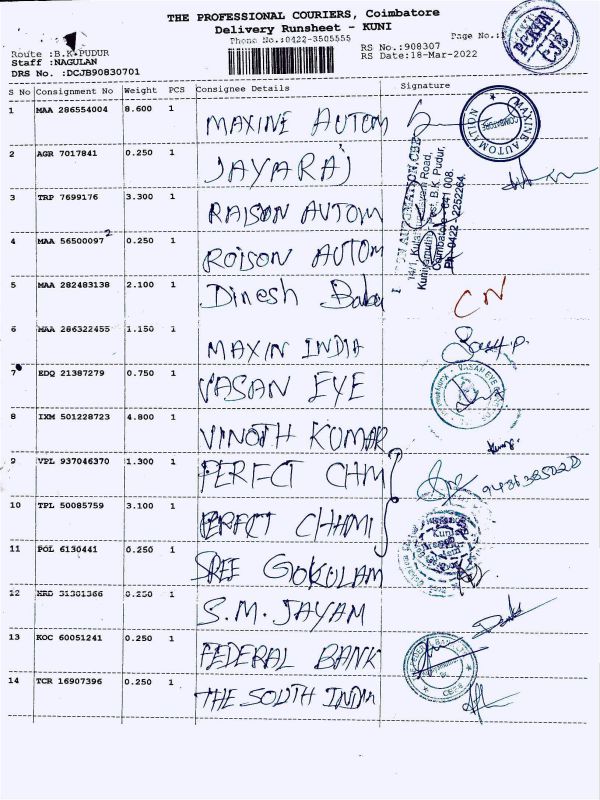 THE PROFESSIONAL COURIERS, Coimbatore
Delivery Runsheet - KUNI
Phone No.:0422-3505555
Page No.:
Route :B.K.PUDUR
RS No.:908307
Staff :NAGULAN
RS Date:18-Mar-2022
DRS No. :DCJB90830701
PCKUN
CJB
S No Consignment No Weight PCS Consignee Details Signature
1 MAA 286554004 8.600 1 MAXINE AUTOM
MAXINE AUTOMATION
COIMBATORE
2 AGR 7017841 0.250 1 JAYARAJ
3 TRP 7699176 3.300 1 RAISON AUTOM
AUTOMATION, CBE
14/1, Kulathupalayam Road,
Kuniyamuthur Post, B.K. Pudur,
Coimbatore - 641 008.
PH: 0422 - 2252264.
4 MAA 56500097 2 0.250 1 ROISON AUTOM
5 MAA 282483138 2.100 1 Dinesh Babu
CN
6 MAA 286322455 1.150 1 MAXIN INDIA
7 EDQ 21387279 0.750 1 VASAN EYE
VASAN EYE
8 IXM 501228723 4.800 1 VINOTH KUMAR
9 VPL 937046370 1.300 1 PERFCT CHM
10 TPL 50085759 3.100 1 PERFCT CHHMI
11 POL 6130441 0.250 1 SREE GOKULAM
12 HRD 31301366 0.250 1 S.M. JAYAM
13 KOC 60051241 0.250 1 FEDERAL BANK
14 TCR 16907396 0.250 1 THE SOUTH INDIA